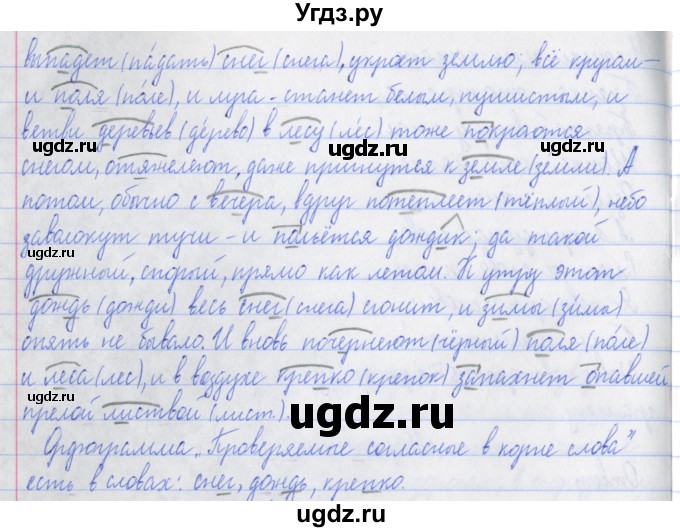 Угдз.ру
выпадет (па́дать) снег (снега), укроет землю, всё кругом –
и поля (по́ле), и луга – станет белым, пушистым, и
ветви деревьев (де́рево) в лесу (ле́с) тоже покроются
снегом, отяжелеют, даже пригнутся к земле (земли). А
потом, обычно с вечера, вдруг потеплеет (тёплый), небо
заволокут тучи – и польётся дождик; да такой
дружный, спорый, прямо как летом. К утру этот
дождь (дожди) весь снег (снега) сгонит, и зимы (зи́мы)
опять не бывало. И вновь почернеют (чёрный) поля (по́ле)
и леса (лес), и в воздухе крепко (крепок) запахнет опавшей
прелой листвой (лист.).
Орфограмма „Проверяемые согласные в корне слова"
есть в словах: снег, дождь, крепко.
ugdz.ru
ugdz.ru
ugdz.ru
ugdz.ru
ugdz.ru
ugdz.ru
ugdz.ru
ugdz.ru
ugdz.ru